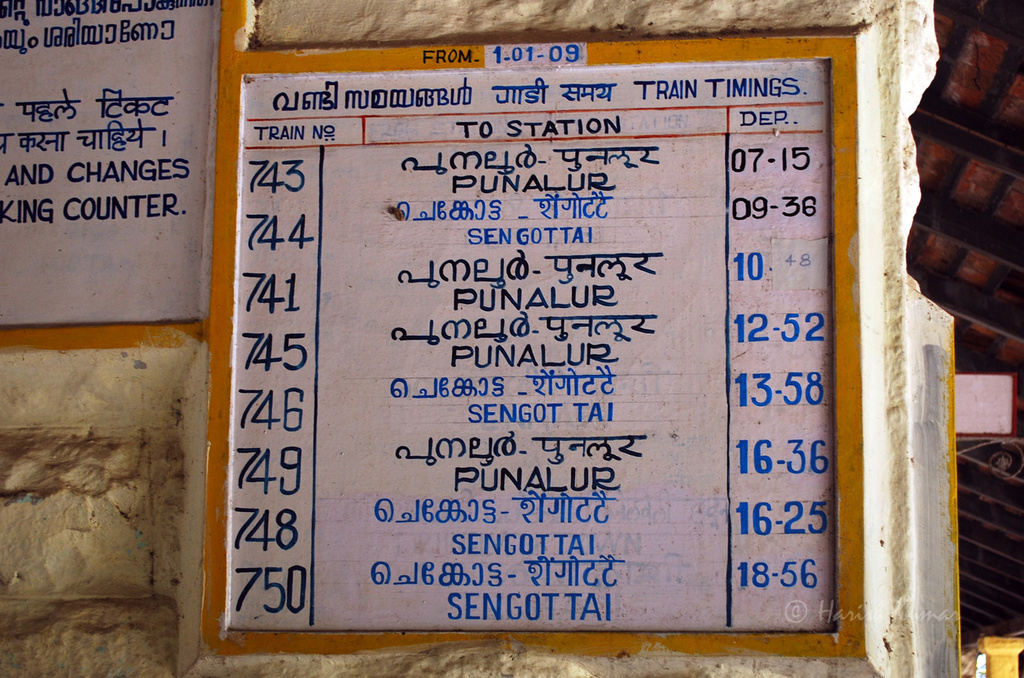 ശരിയാണോ
पहले टिकट
करना चाहिये ।
AND CHANGES
KING COUNTER.
FROM- 1-01-09
വണ്ടി സമയങ്ങൾ गाडी समय TRAIN TIMINGS.
TRAIN NO TO STATION DEP..
743 പുനലൂർ- पुनलूर 07-15
PUNALUR
744 ചെങ്കോട്ട - शेंगोटटै 09-36
SENGOTTAI
741 പുനലൂർ- पुनलूर 10. 48
PUNALUR
745 പുനലൂർ- पुनलूर 12-52
PUNALUR
746 ചെങ്കോട്ട - शेंगोटटै 13-58
SENGOT TAI
749 പുനലൂർ- पुनलूर 16-36
PUNALUR
748 ചെങ്കോട്ട- शेंगोटटै 16-25
SENGOTTAI
750 ചെങ്കോട്ട- शेंगोटटै 18-56
SENGOTTAI